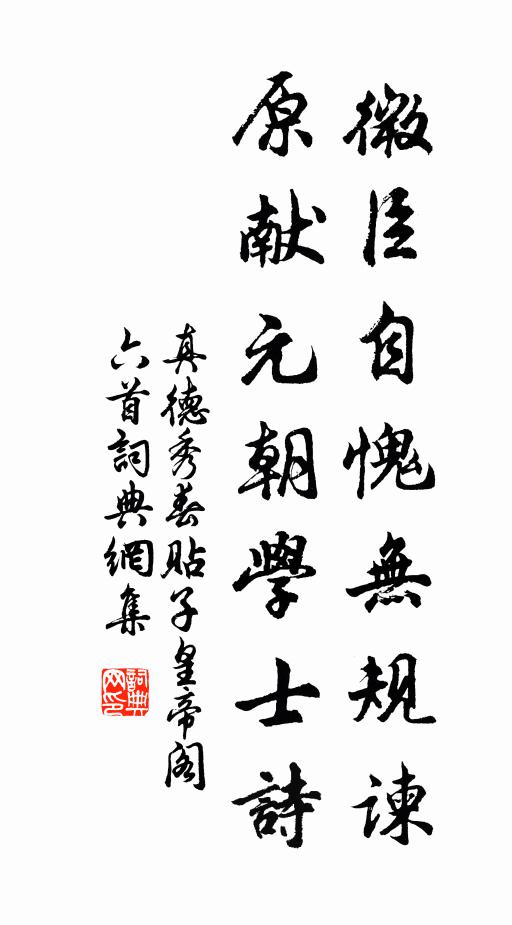 微臣自愧無規谏
原献元朝學士詩
真德秀春貼子皇帝阁
六首詞典網集
詞典网印